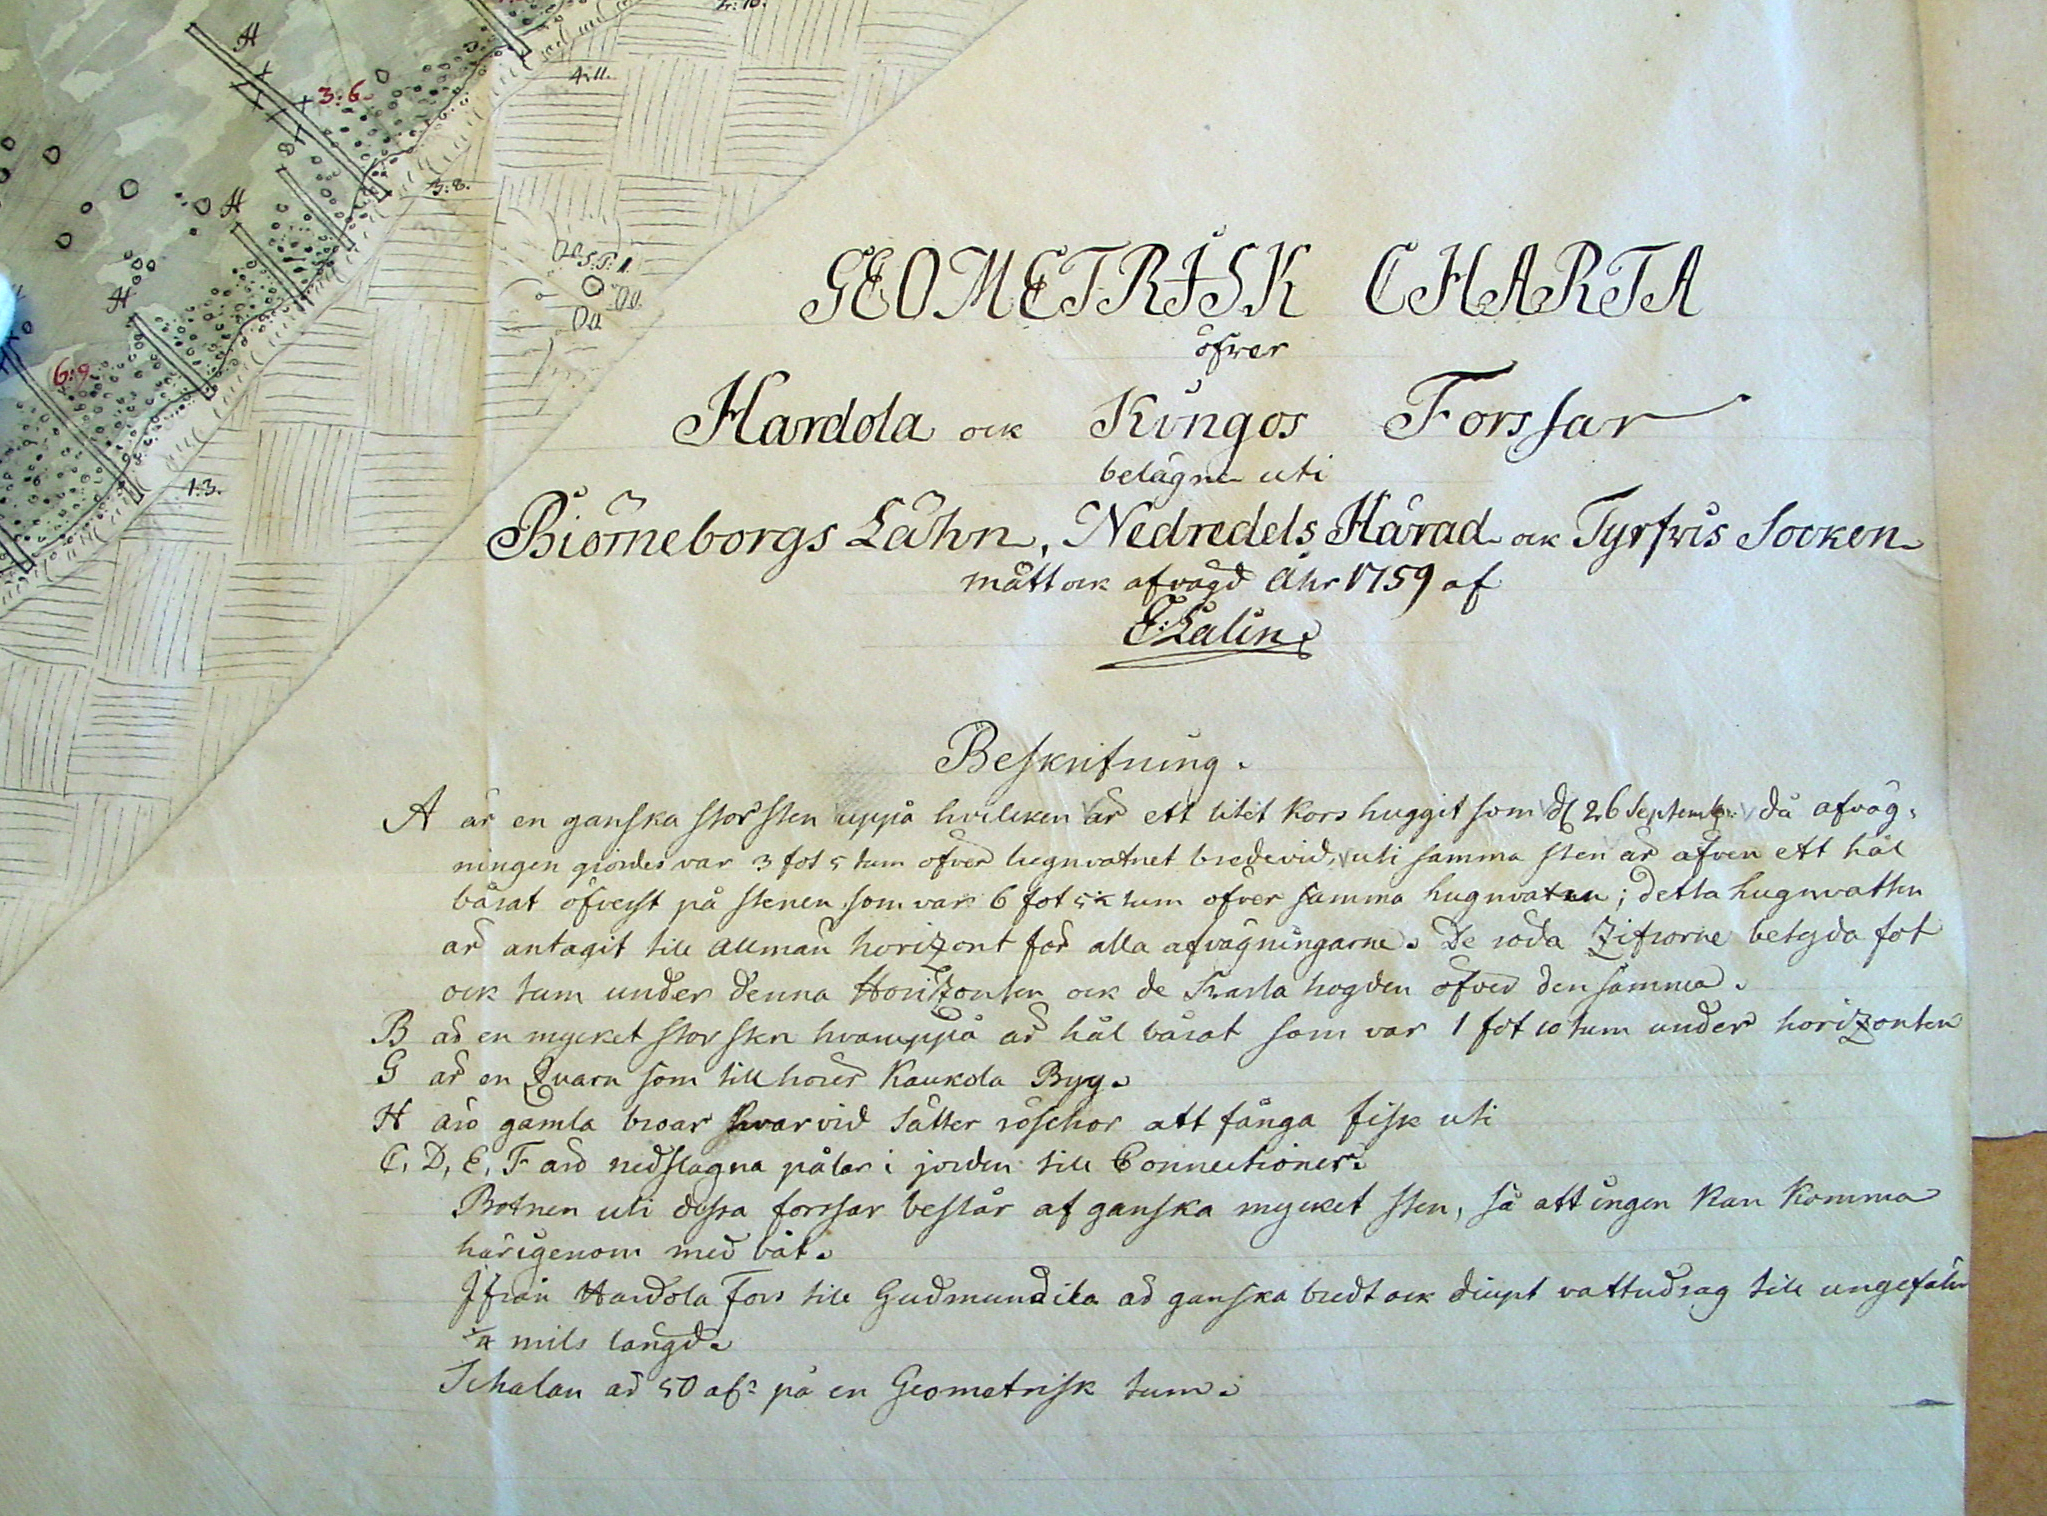 A
3:6.
4:11.
3:8.
A
H
6:9.
1:3.
GEOMETRISK CHARTA
öfver
Hardola ock Kungos Forssar
belägne uti
Biörneborgs Lähn, Nedredels Härad ock Tyrfvis Socken
mätt ock afvägd Åhr 1759 af
E: Lalin.
Beskrifning.
A är en ganska stor sten uppå hvilcken är ett litet kors huggit som d 26 Septembr: då afväg-
ningen giordes var 3 fot 5 tum öfver lugnvatnet bredevid, uti samma sten är äfven ett hål
bårat öfverst på stenen som var 6 fot 5½ tum öfver samma lugnvaten; detta lugnvatten
är antagit till allmän horizont för alla afvägningarne. De röda Zifrorne betyda fot
ock tum under denna Horizonten ock de svarta högden öfver densamma.
B är en mycket stor sten hvaruppå är hål bårat som var 1 fot 10 tum under horizonten
G är en Qvarn som tillhörer Kaukola By.
H äro gamla broar hvarvid sätter att fånga fisk uti
C, D, E, F äro nedslagna pålar i jorden till Connectioner.
Botnen uti dessa forssar består af ganska mycket sten, så att ingen kan komma
härigenom med båt.
Ifrån Hardola Fors till Gudmundila är ganska bredt ock diupt vattudrag till ungefähr
¼ mils längd.
Schalan är 50 al:r på en Geometrisk tum.